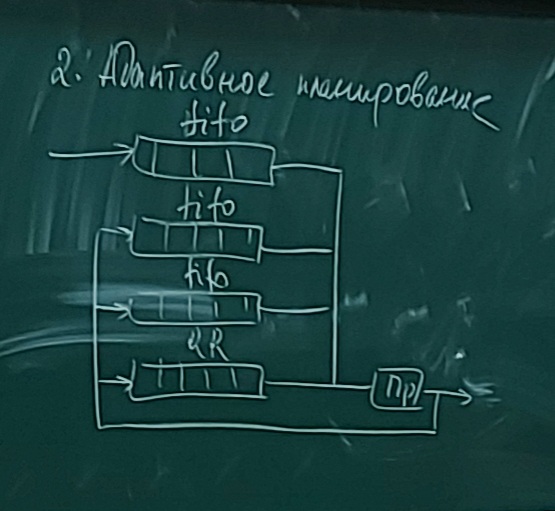 2. Адаптивное планирование
fifo
fifo
fifo
RR
Пр